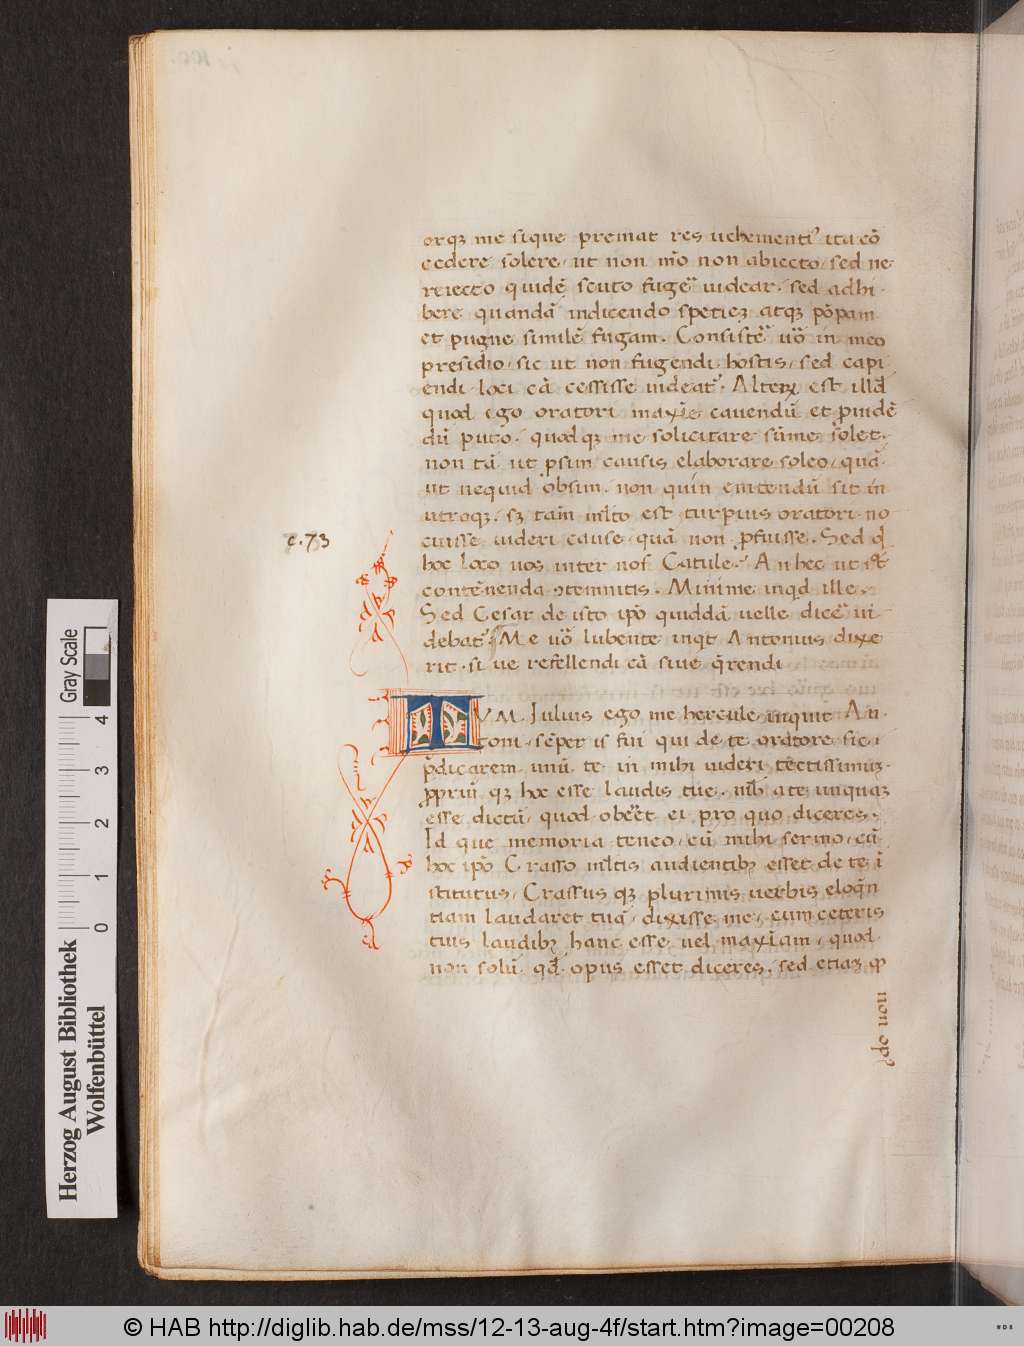 orqꝫ me si que premat res uehementi⁹ ita cō
cedere solere. ut non mō non abiecto. sed ne
reiecto quidē scuto fugē uidear. sed adhi
bere quandā indicendo speciēꝫ atqꝫ pōpam
et pugne similē fugam. Consistē uō in meo
presidio. sic ut non fugendi hostis. sed capi
endi loci cā cessisse uideat᷑. Alteꝝ est illd̄
quod ego oratori maxīe cauendū et ꝓuidē
dū puto. quod qꝫ me solicitare sūme solet.
non tā ut ꝓsim causis elaborare soleo. quā
ut nequid obsim. non quin enitendū sit in
utroqꝫ. sꝫ tam̄ ml̄to est turpius oratori no
cuisse uideri cause quā non ꝓfuisse. Sed qͩ
c.73
hoc loco uos inter nos Catule. An hec ut st̄
contēnenda ꝯtemnitis. Minime inqd ille.
Sed Cesar de isto ip̄o quiddā uelle dicē ui
debat᷑. Me uō lubente inqt Antonius dixe
rit. si ue refellendi cā siue q̄rendi
TVM. Iulius ego me hercule inquit An
toni. sēper is fui qui de te oratore sic
p̄dicarem unū te in mihi uideri tectissimūꝫ
ꝓpriū qꝫ hoc esse laudis tue. nīh̄ a te unquaꝫ
esse dictū quod obēēt ei pro quo diceres.
Id que memoria teneo. cū mihi sermo. cū
hoc ip̄o Crasso ml̄tis audientibꝫ esset de te ī
stitutus. Crassus qꝫ plurimis uerbis eloqn̄
tiam laudaret tuā. dixisse me. cum ceteris
tuis laudibꝫ hanc esse uel maxīam. quod
non solū qd̄ opus esset diceres. sed etiaꝫ qͩ
qd̄ non
Herzog August Bibliothek
Wolfenbüttel
Gray Scale
0 1 2 3 4
© HAB http://diglib.hab.de/mss/12-13-aug-4f/start.htm?image=00208